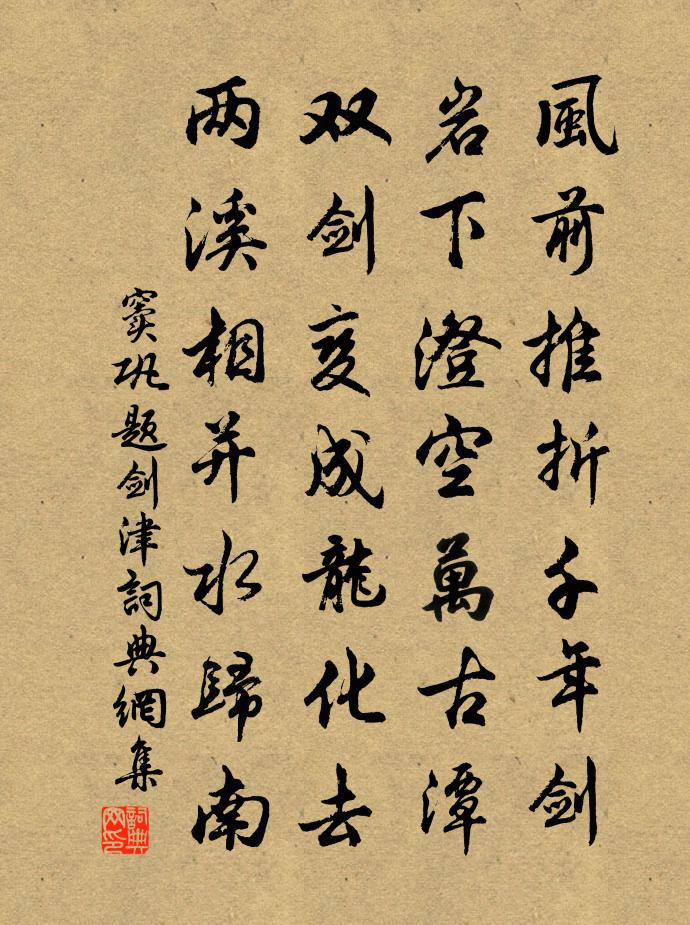 風前推折千年剑
岩下澄空萬古潭
双剑变成龍化去
两溪相并水歸南
窦巩题剑津詞典網集
詞典网印